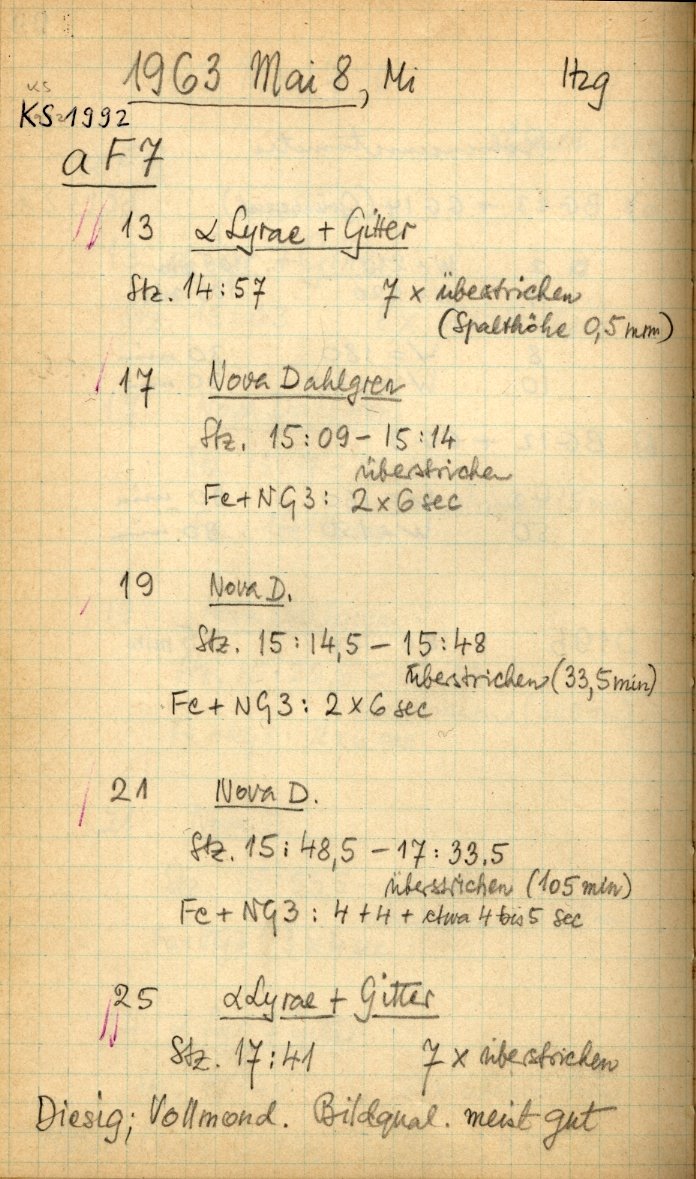 1963 Mai 8, Mi Hzg
KS
KS 1992
aF7
13 α Lyrae + Gitter
Stz. 14:57 7 x überstrichen
(Spalthöhe 0,5 mm)
17 Nova Dahlgren
Stz. 15:09 – 15:14
überstrichen
Fe+NG3: 2x6 sec
19 Nova D.
Stz. 15:14,5 – 15:48
überstrichen (33,5 min)
Fe+NG3: 2x6 sec
21 Nova D.
Stz. 15:48,5 – 17:33.5
überstrichen (105 min)
Fe+NG3: 4+4+ etwa 4 bis 5 sec
25 α Lyrae + Gitter
Stz. 17:41 7 x überstrichen
Diesig; Vollmond. Bildqual. meist gut